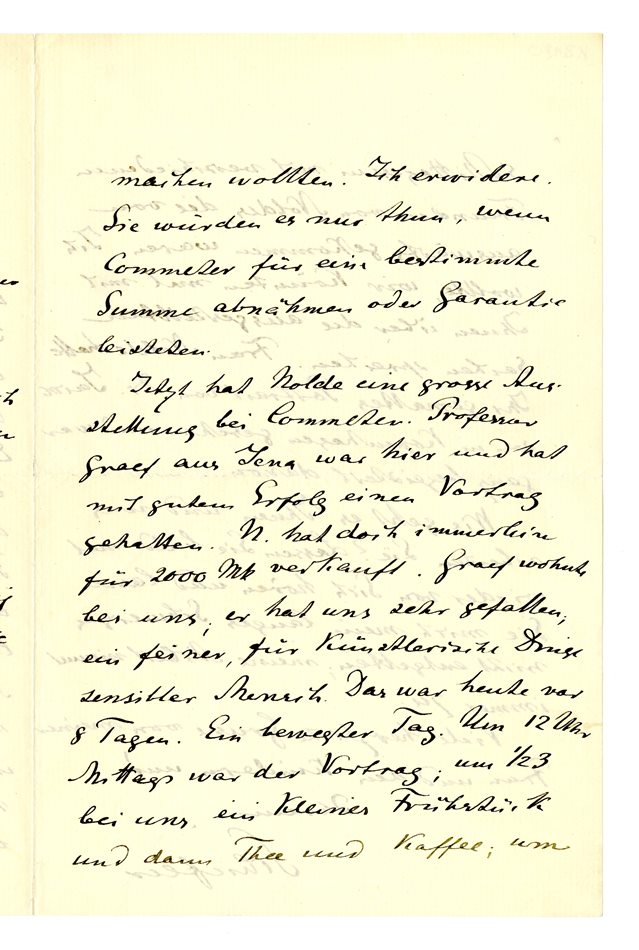 machen wollten. Ich erwidere.
Sie würden es nur thun, wenn
Commeter für eine bestimmte
Summe abnähmen oder Garantie
leisteten.
Jetzt hat Nolde eine grosse Aus-
stellung bei Commeter. Professor
Graef aus Jena war hier und hat
mit gutem Erfolg einen Vortrag
gehalten. N. hat doch immerhin
für 2000 Mk verkauft. Graef wohnte
bei uns, er hat uns sehr gefallen,
ein feiner, für künstlerische Dinge
sensibler Mensch. Das war heute vor
8 Tagen. Ein bewegter Tag. Um 12 Uhr
Mittags war der Vortrag; um 1/23
bei uns ein kleines Frühstück
und dann Thee und Kaffee; um